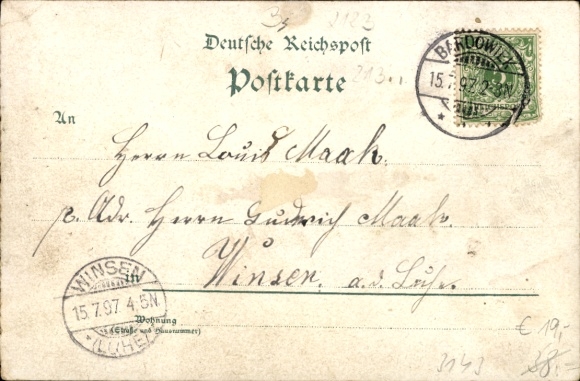 3123
Deutsche Reichspost
Postkarte
BARDOWIEK
15.7.97 2-3N
An
Herrn Louis Maack.
p. Adr. Herrn Hudrich Maack.
in Winsen. a. d. Luhe.
WINSEN
15.7.97 4-5N
(LUHE)
Wohnung
(Straße und Hausnummer)
€ 19,-
3143
38.-